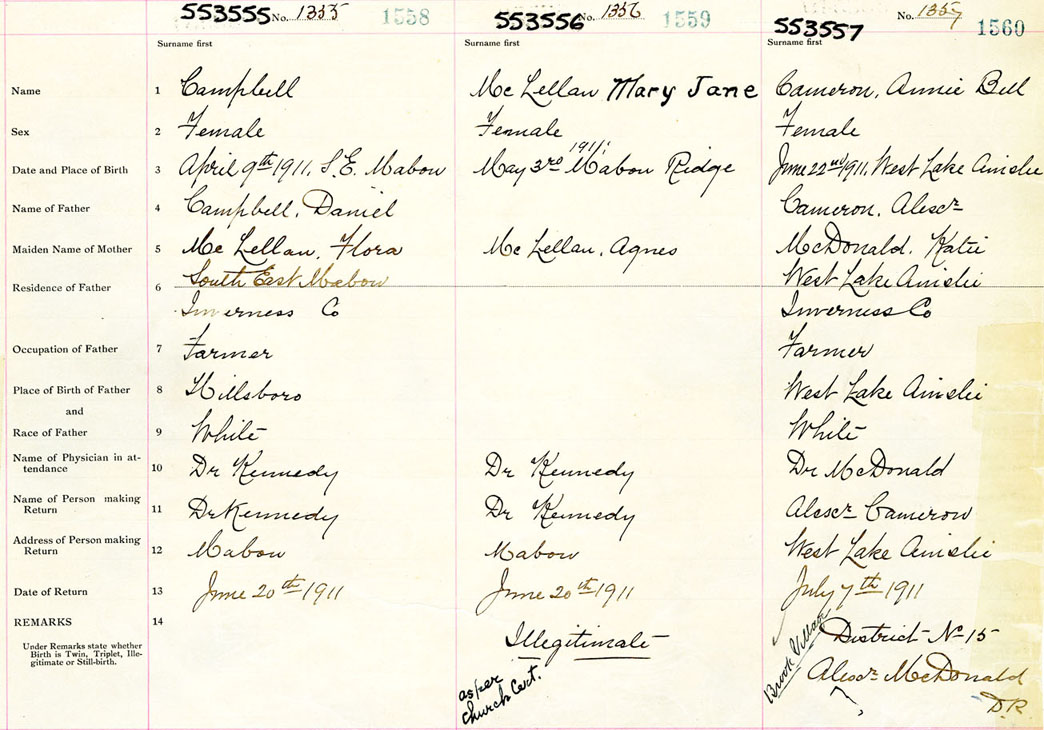 553555 No. 1355 1558 553556 No. 1356 1559 553557 No. 1357 1560
Surname first Surname first Surname first
Name 1 Campbell Mc Lellan Mary Jane Cameron, Annie Bell
Sex 2 Female Female Female
1911.
Date and Place of Birth 3 April 9th 1911, S.E. Mabou May 3rd Mabou Ridge June 22nd 1911, West Lake Ainslie
Name of Father 4 Campbell, Daniel Cameron, Alexr
Maiden Name of Mother 5 Mc Lellan, Flora Mc Lellan, Agnes McDonald, Katie
Residence of Father 6 South East Mabou West Lake Ainslie
Inverness Co Inverness Co
Occupation of Father 7 Farmer Farmer
Place of Birth of Father 8 Hillsboro West Lake Ainslie
and
Race of Father 9 White White
Name of Physician in at-
tendance 10 Dr Kennedy Dr Kennedy Dr McDonald
Name of Person making
Return 11 Dr Kennedy Dr Kennedy Alexr Cameron
Address of Person making
Return 12 Mabou Mabou West Lake Ainslie
Date of Return 13 June 20th 1911 June 20th 1911 July 7th 1911
REMARKS 14
Under Remarks state whether
Birth is Twin, Triplet, Ille-
gitimate or Still-birth.
Illegitimate
as per
Church Cert.
Brook Village
District No 15
Alexr McDonald
D.R.